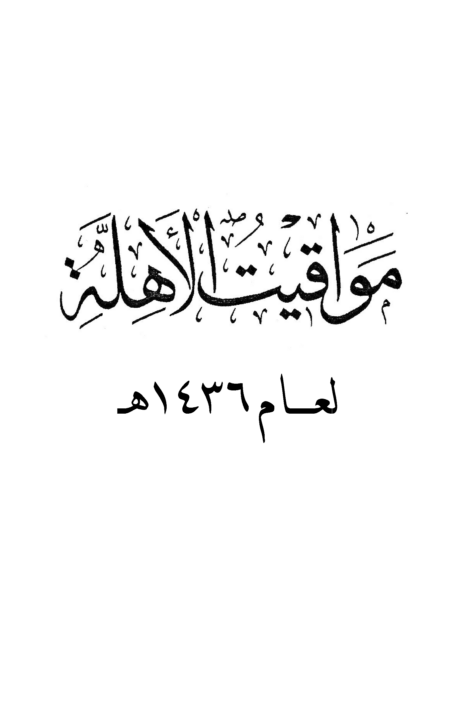 مَوَاقِيتُ الأَهِلَّةِ
لعـــام ١٤٣٦هـ